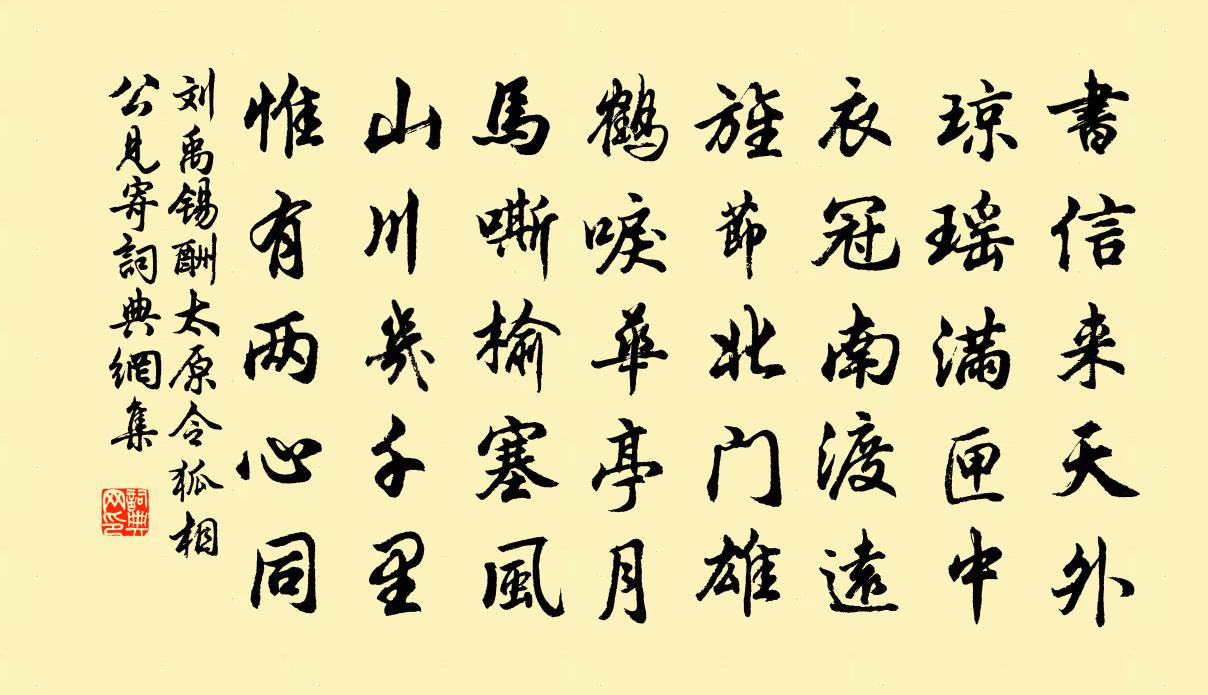 書信来天外
琼瑶满匣中
衣冠南渡遠
旌節北门雄
鶴唳華亭月
馬嘶榆塞風
山川幾千里
惟有两心同
刘禹锡酬太原令狐相
公見寄詞典網集
詞典
网印